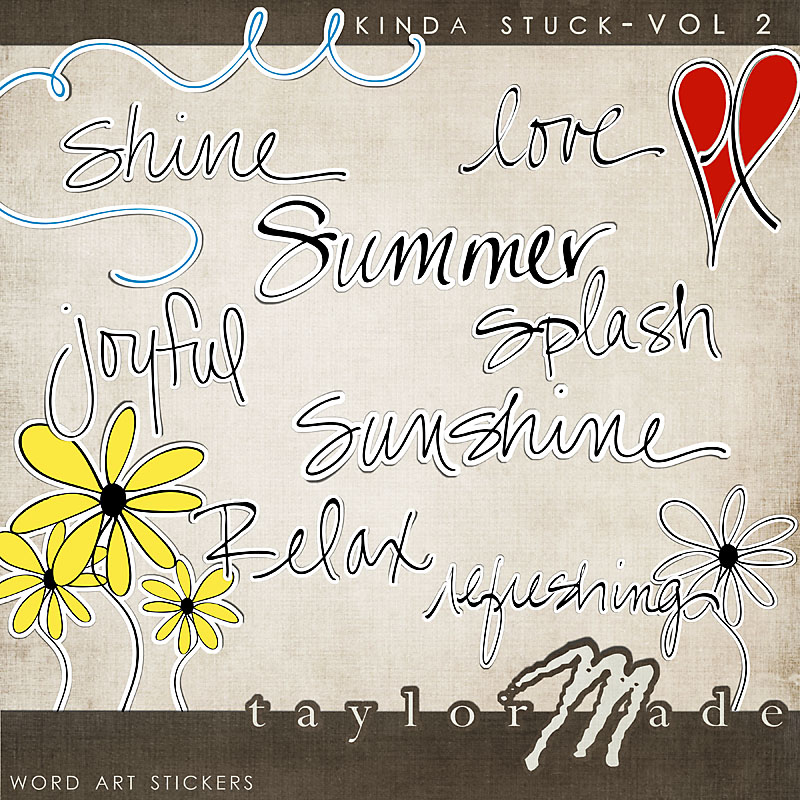 KINDA STUCK-VOL 2
shine
love
Summer
joyful
splash
Sunshine
Relax
refreshing
taylorMade
WORD ART STICKERS